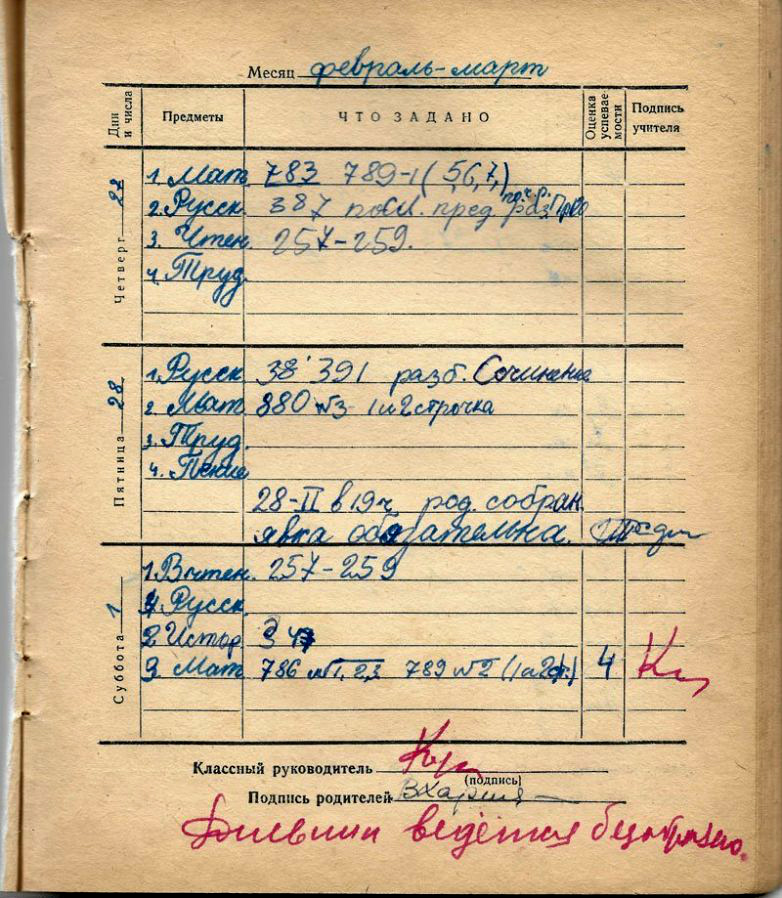 Месяц февраль-март
Дни и числа Предметы ЧТО ЗАДАНО Оценка успевае-мости Подпись учителя
Четверг
1. Мат. 783 789-1 (5,6,7,)
2. Русск. 387 пред.
3. Чтен. 257-259.
4. Труд.
Пятница 28
1. Русск. 391 разб. Сочинение
2. Мат. 880 №3- 1 и 2 строчка
3. Труд.
4. Пение
28-II в 19 ч род. собран.
явка обязательна.
Суббота 1
1. Вчтен. 257-259
4. Русск.
2. Истор.
3. Мат. 786 №1, 2,3 789 №2 (1 и 2 ст.) 4
Классный руководитель
(подпись)
Подпись родителей
Дневник ведётся безобразно.